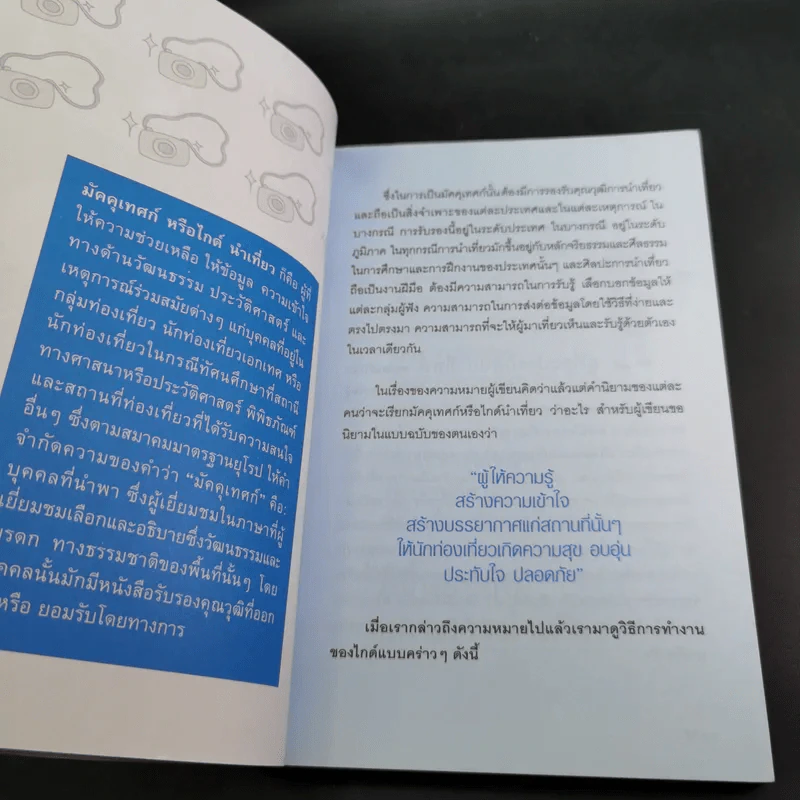 มัคคุเทศก์ หรือไกด์ นำเที่ยว ก็คือ ผู้ที่
ให้ความช่วยเหลือ ให้ข้อมูล ความเข้าใจ
ทางด้านวัฒนธรรม ประวัติศาสตร์ และ
เหตุการณ์ร่วมสมัยต่างๆ แก่บุคคลที่อยู่ใน
กลุ่มท่องเที่ยว นักท่องเที่ยวเอกเทศ หรือ
นักท่องเที่ยวในกรณีทัศนศึกษาที่สถานี
ทางศาสนาหรือประวัติศาสตร์ พิพิธภัณฑ์
และสถานที่ท่องเที่ยวที่ได้รับความสนใจ
อื่นๆ ซึ่งตามสมาคมมาตรฐานยุโรป ให้คำ
จำกัดความของคำว่า “มัคคุเทศก์” คือ:
บุคคลที่นำพา ซึ่งผู้เยี่ยมชมในภาษาที่ผู้
เยี่ยมชมเลือกและอธิบายซึ่งวัฒนธรรมและ
รดก ทางธรรมชาติของพื้นที่นั้นๆ โดย
คคลนั้นมักมีหนังสือรับรองคุณวุฒิที่ออก
หรือ ยอมรับโดยทางการ
ซึ่งในการเป็นมัคคุเทศก์นั้น ต้องมีการรองรับคุณวุฒิการนำเที่ยว
และถือเป็นสิ่งจำเพาะของแต่ละประเทศและในแต่ละเหตุการณ์ ใน
บางกรณี การรับรองนี้อยู่ในระดับประเทศ ในบางกรณี อยู่ในระดับ
ภูมิภาค ในทุกกรณีการนำเที่ยวมักขึ้นอยู่กับหลักจริยธรรมและศีลธรรม
ในการศึกษาและการฝึกงานของประเทศนั้นๆ และศิลปะการนำเที่ยว
ถือเป็นงานฝีมือ ต้องมีความสามารถในการรับรู้ เลือกบอกข้อมูลให้
แต่ละกลุ่มผู้ฟัง ความสามารถในการส่งต่อข้อมูลโดยใช้วิธีที่ง่ายและ
ตรงไปตรงมา ความสามารถที่จะให้ผู้มาเที่ยวเห็นและรับรู้ด้วยตัวเอง
ในเวลาเดียวกัน
ในเรื่องของความหมายผู้เขียนคิดว่าแล้วแต่คำนิยามของแต่ละ
คนว่าจะเรียกมัคคุเทศก์หรือไกด์นำเที่ยว ว่าอะไร สำหรับผู้เขียนขอ
นิยามในแบบฉบับของตนเองว่า
“ผู้ให้ความรู้
สร้างความเข้าใจ
สร้างบรรยากาศแก่สถานที่นั้นๆ
ให้นักท่องเที่ยวเกิดความสุข อบอุ่น
ประทับใจ ปลอดภัย”
เมื่อเรากล่าวถึงความหมายไปแล้วเรามาดูวิธีการทำงาน
ของไกด์แบบคร่าวๆ ดังนี้